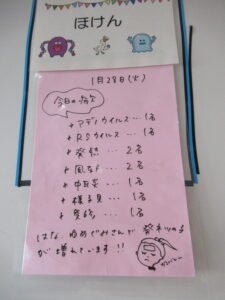 ほけん
1月28日(火)
今日の病欠
+ アデノウイルス … 1名
+ RSウイルス … 1名
+ 発熱 … 2名
+ 風など … 2名
+ 中耳炎 … 1名
+ 様子見 … 1名
+ … 1名
はな、ゆめぐみさんで 発ネツの子
が増えています!!